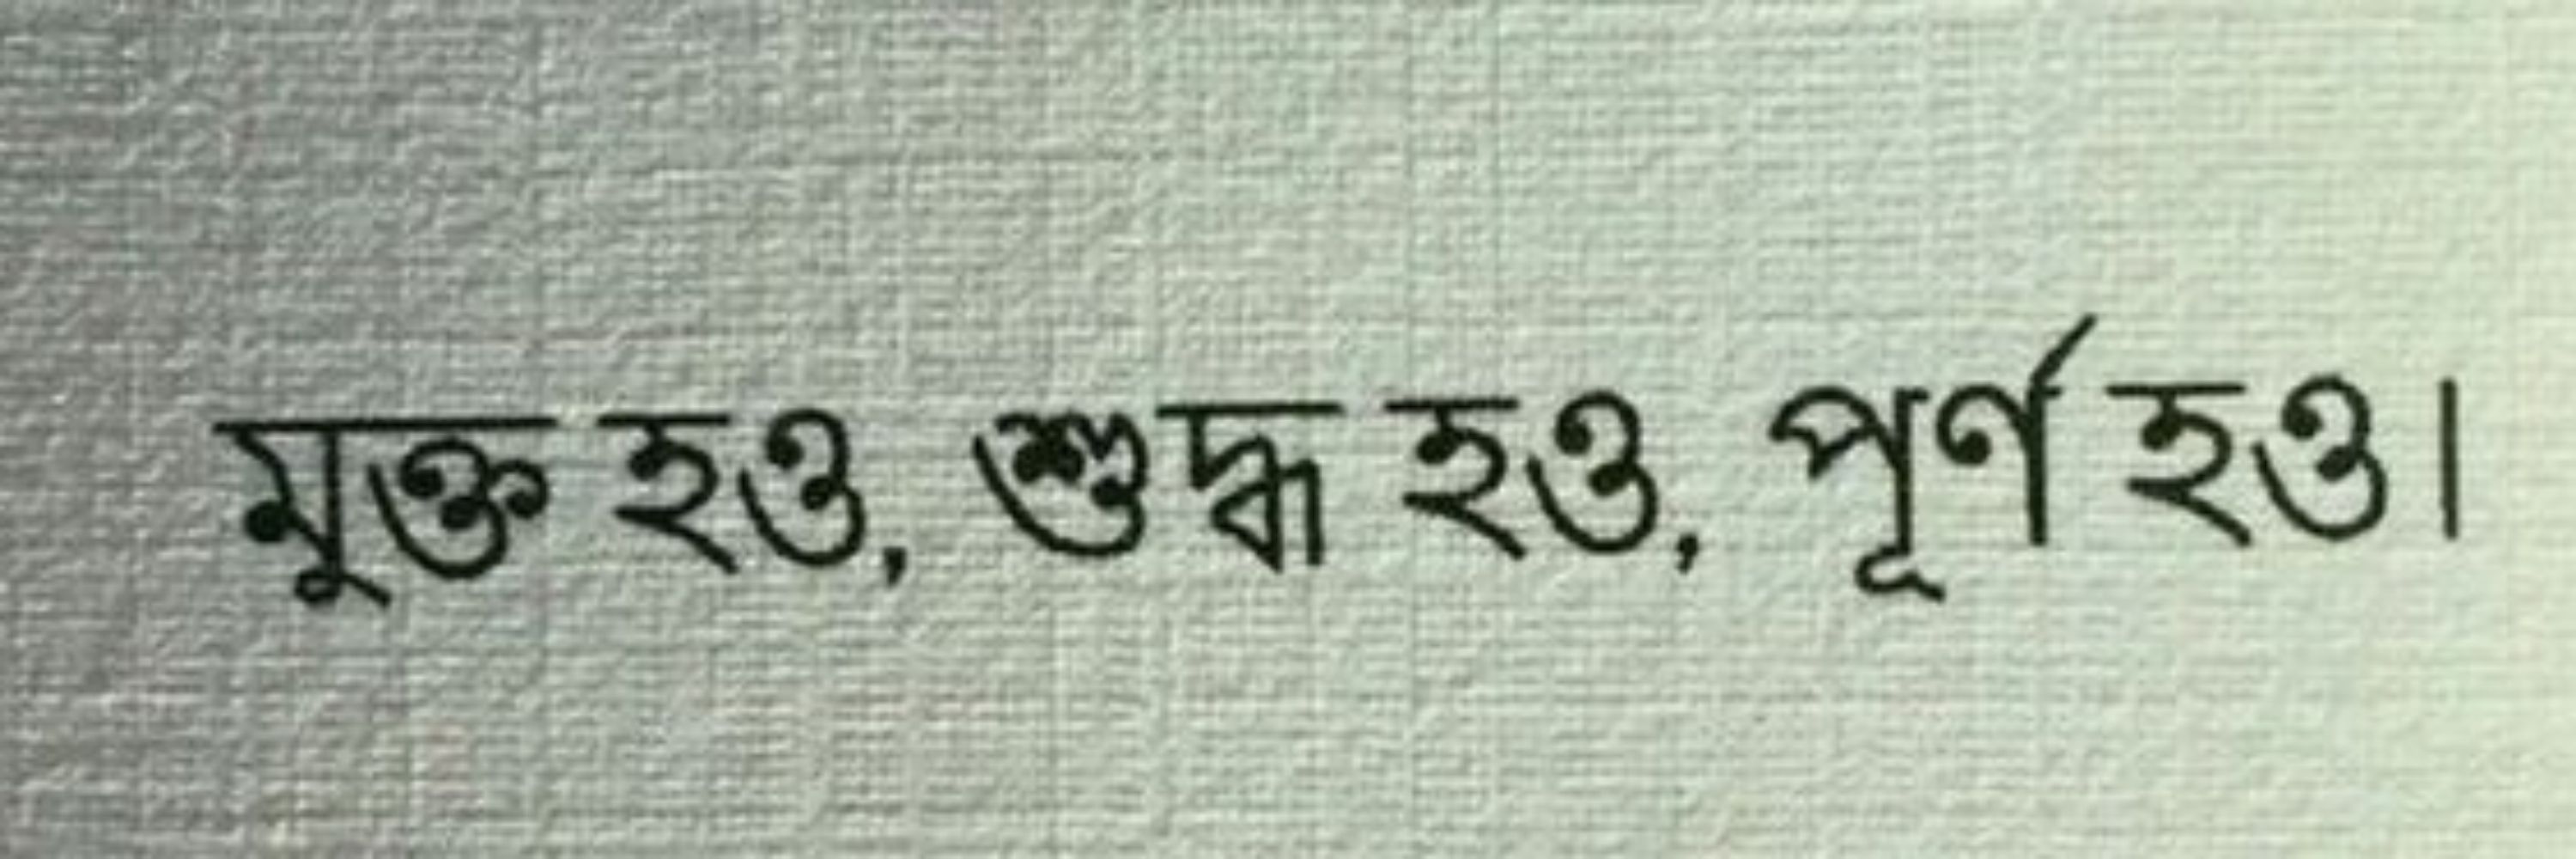 মুক্ত হও, শুদ্ধ হও, পূর্ণ হও।